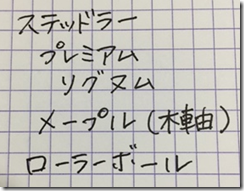 ステッドラー
プレミアム
リグヌム
メープル(木軸)
ローラーボール